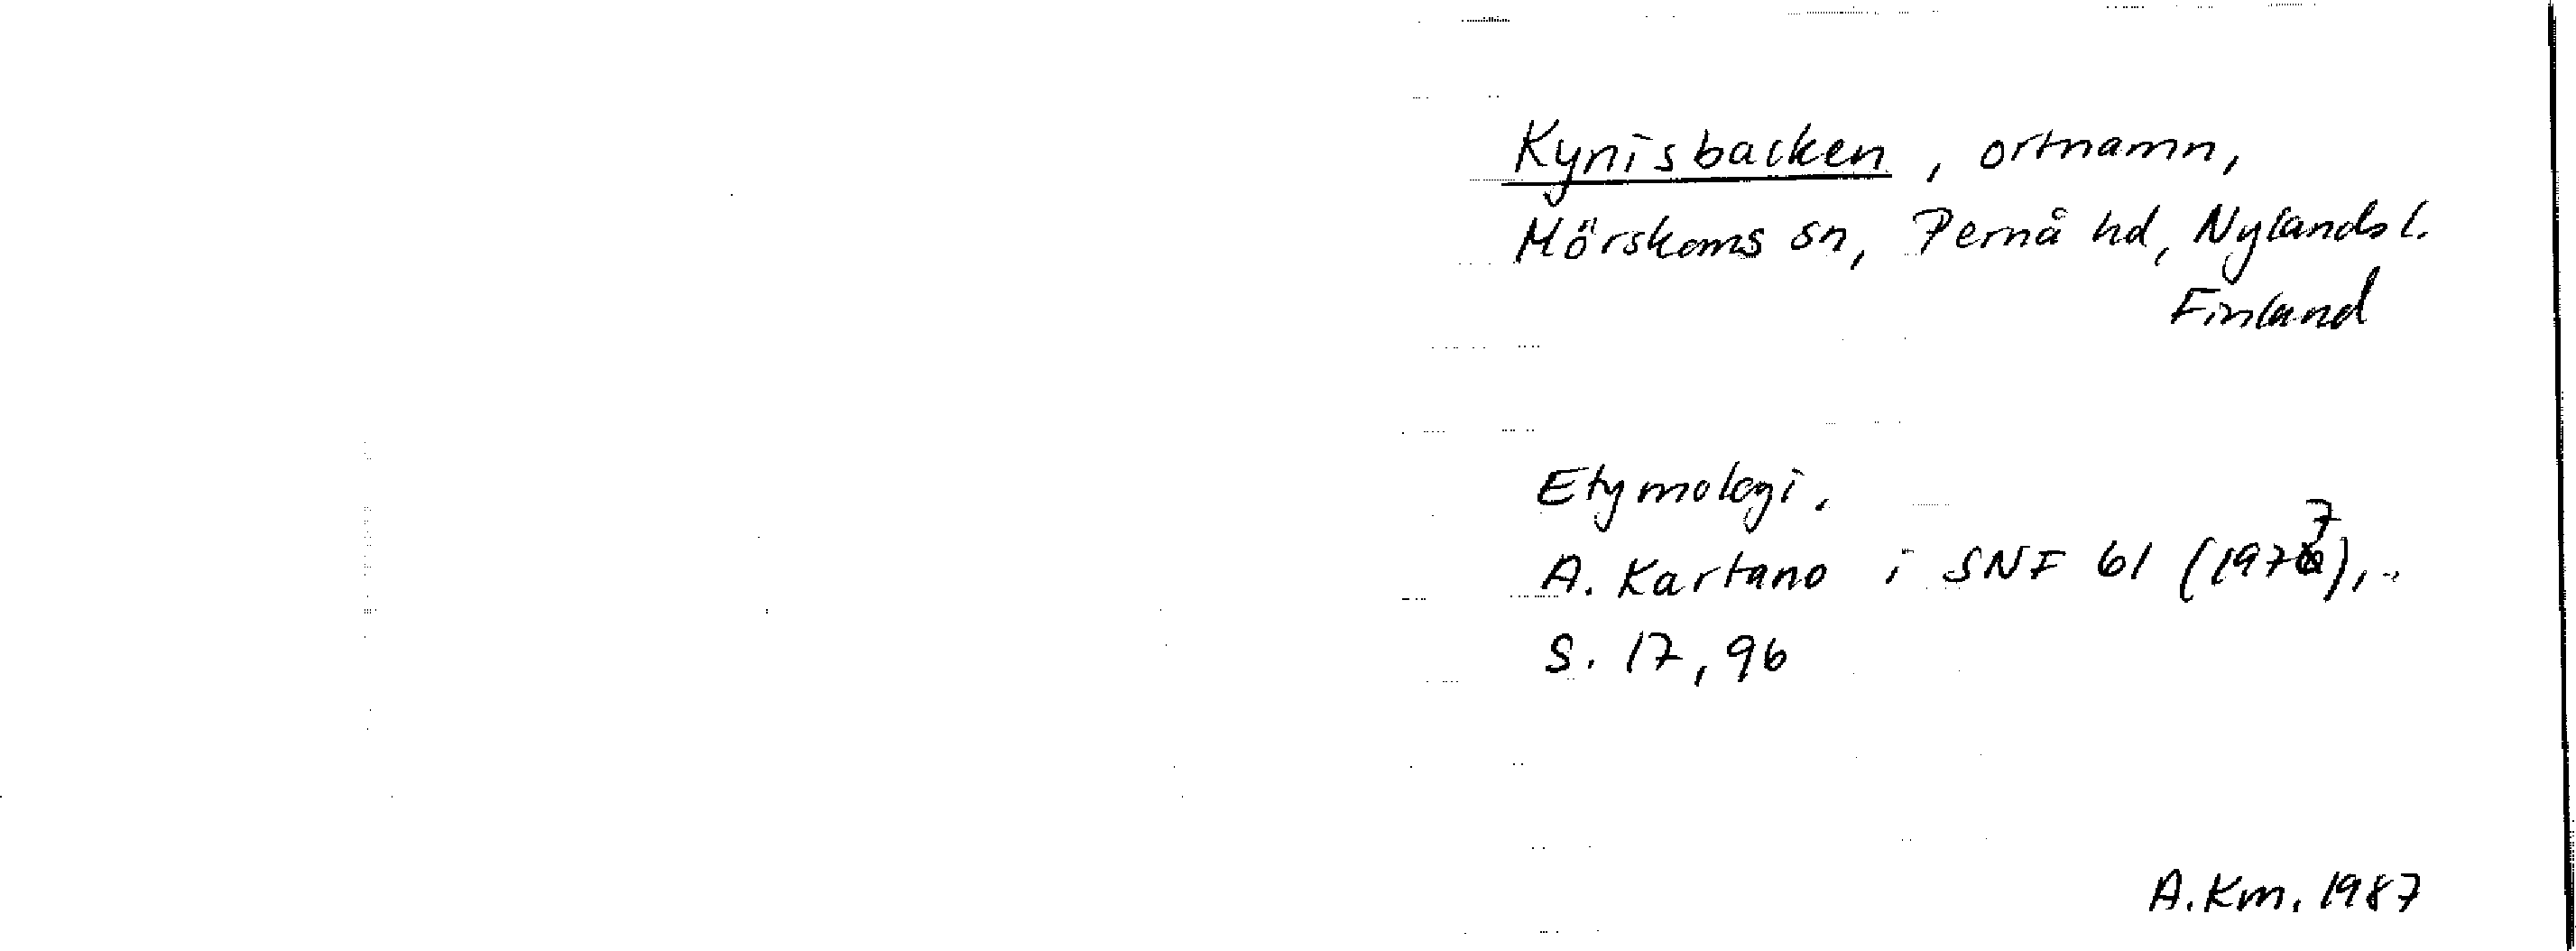 Kynisbacken, ortnamn,
Mörskoms sn, Pernå hd, Nylands l.
Finland
Etymologi.
A. Kartano i SNF 61 (1977),
S. 17, 96
A.Km. 1987